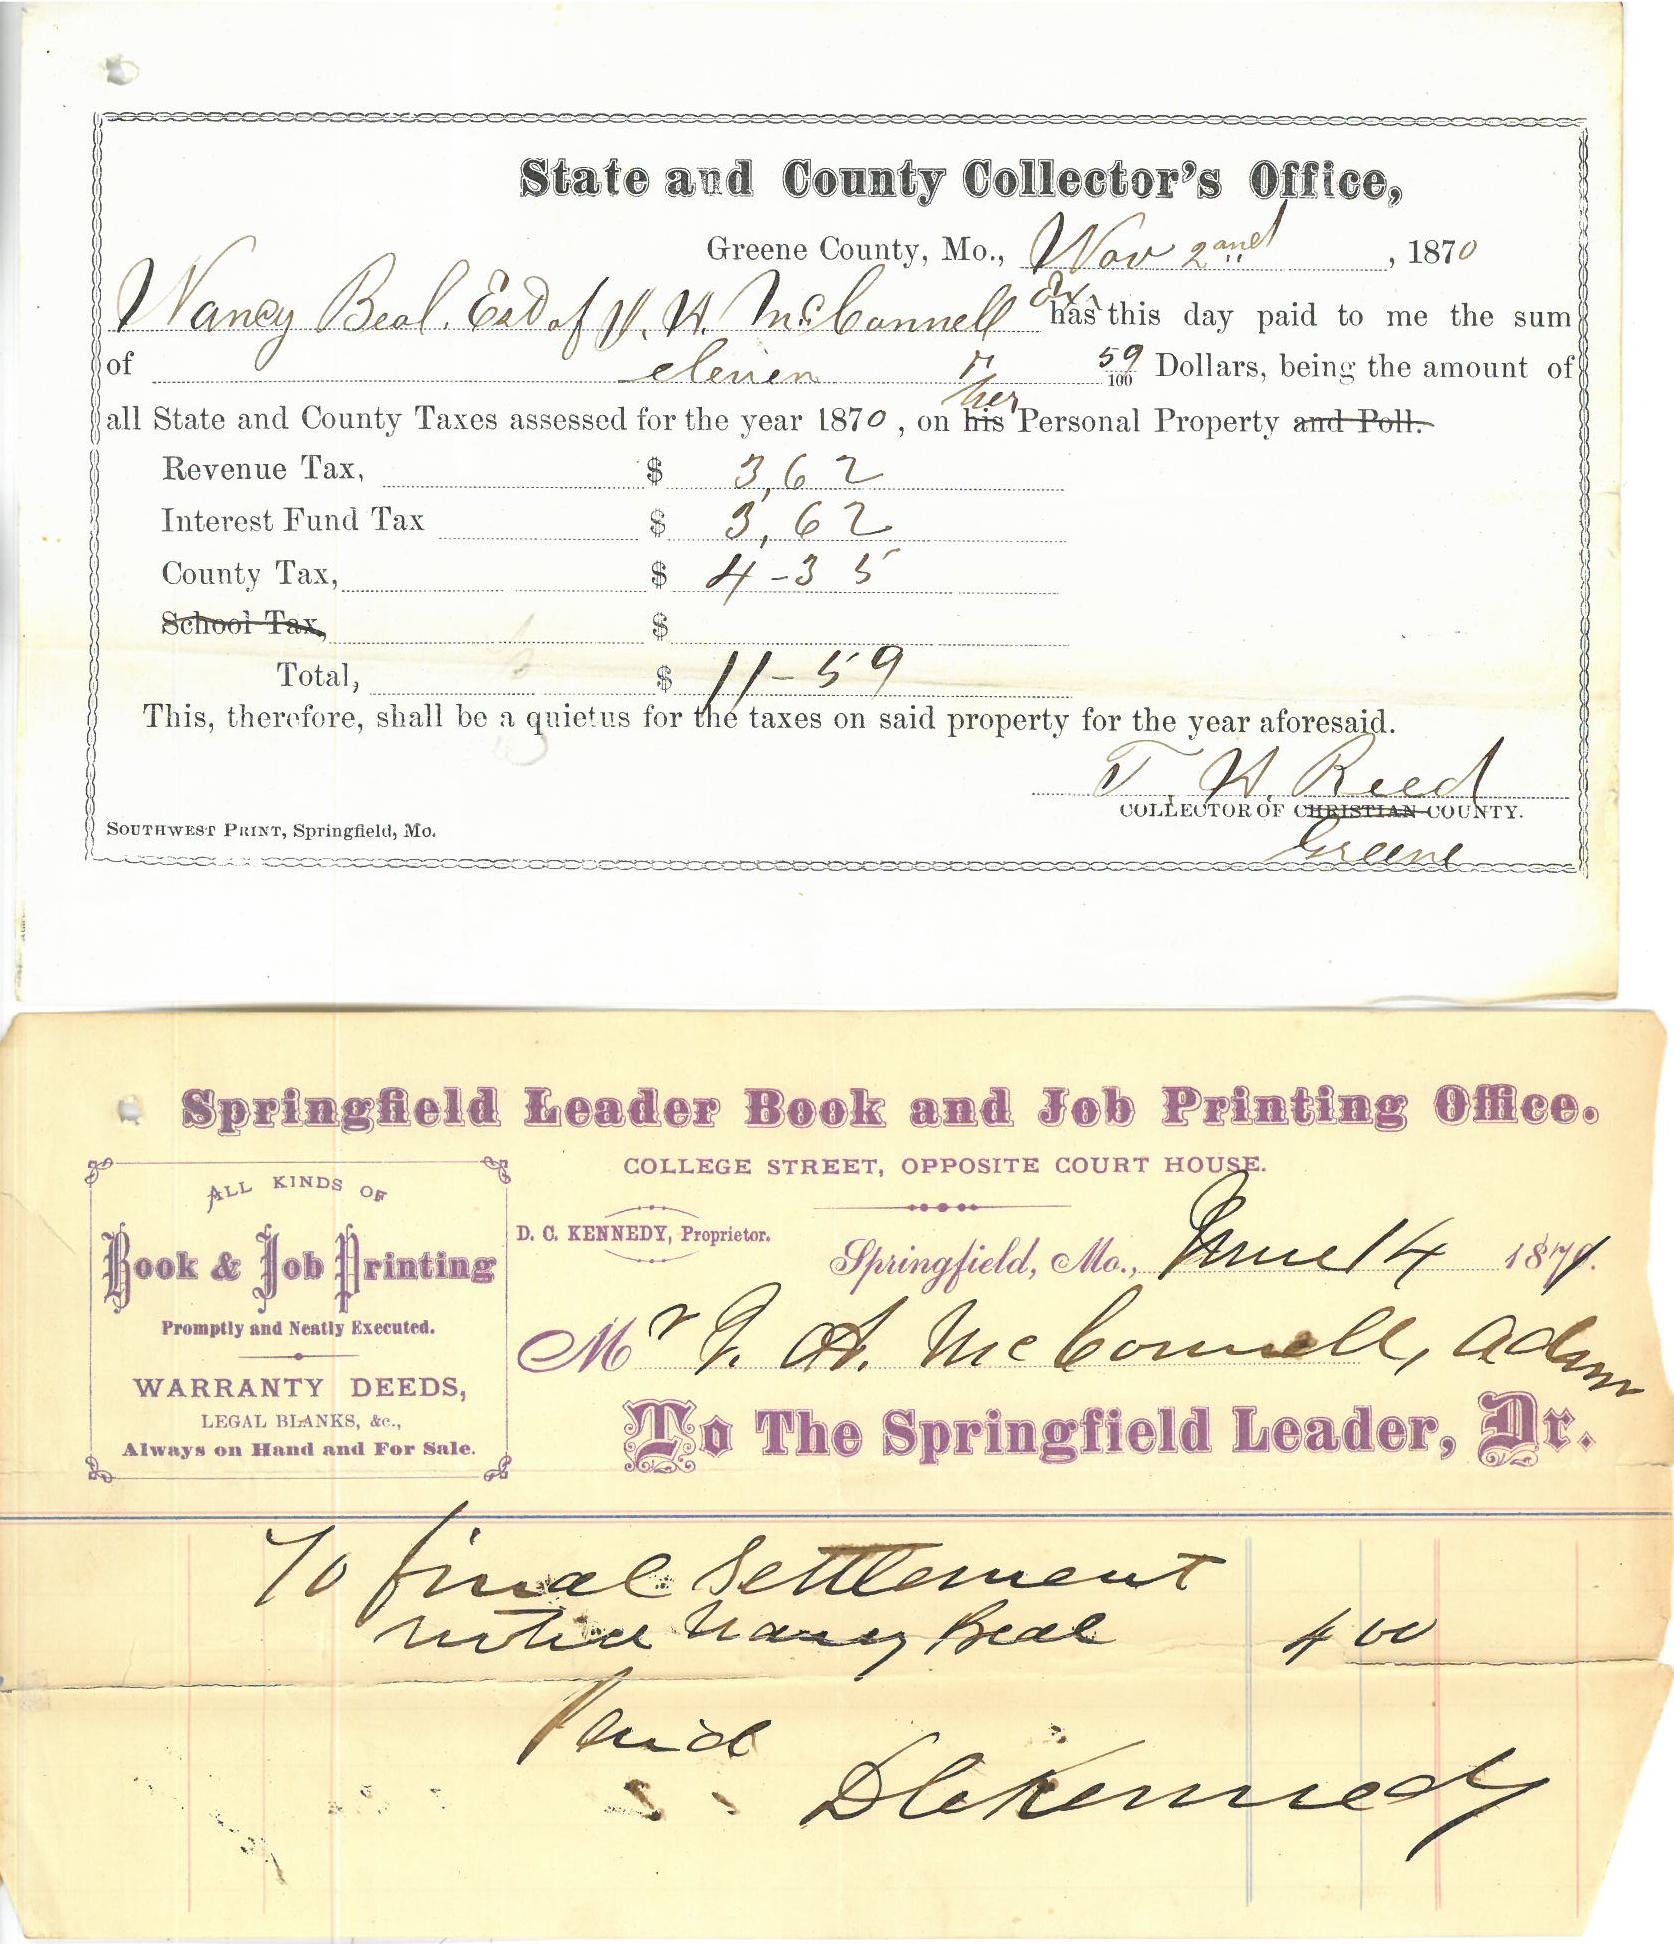 State and County Collector's Office,
Greene County, Mo., Nov 2and , 1870
Nancy Beal. Esd of W. McConnell has this day paid to me the sum
of eleven 59/100 Dollars, being the amount of
all State and County Taxes assessed for the year 1870 , on his her Personal Property and Poll.
Revenue Tax, $ 3,62
Interest Fund Tax $ 3,62
County Tax, $ 4-35
School Tax, $
Total, $ 11-59
This, therefore, shall be a quietus for the taxes on said property for the year aforesaid.
T. W. Reed
COLLECTOR OF CHRISTIAN COUNTY.
Greene
SOUTHWEST PRINT, Springfield, Mo.
Springfield Leader Book and Job Printing Office.
COLLEGE STREET, OPPOSITE COURT HOUSE.
ALL KINDS OF
Book & Job Printing
Promptly and Neatly Executed.
WARRANTY DEEDS,
LEGAL BLANKS, &c.,
Always on Hand and For Sale.
D. C. KENNEDY, Proprietor.
Springfield, Mo., June 14 1871.
Mr McConnell, Adm
To The Springfield Leader, Dr.
To final Settlement
notice Nancy Beal 4 00
Paid
D C Kennedy